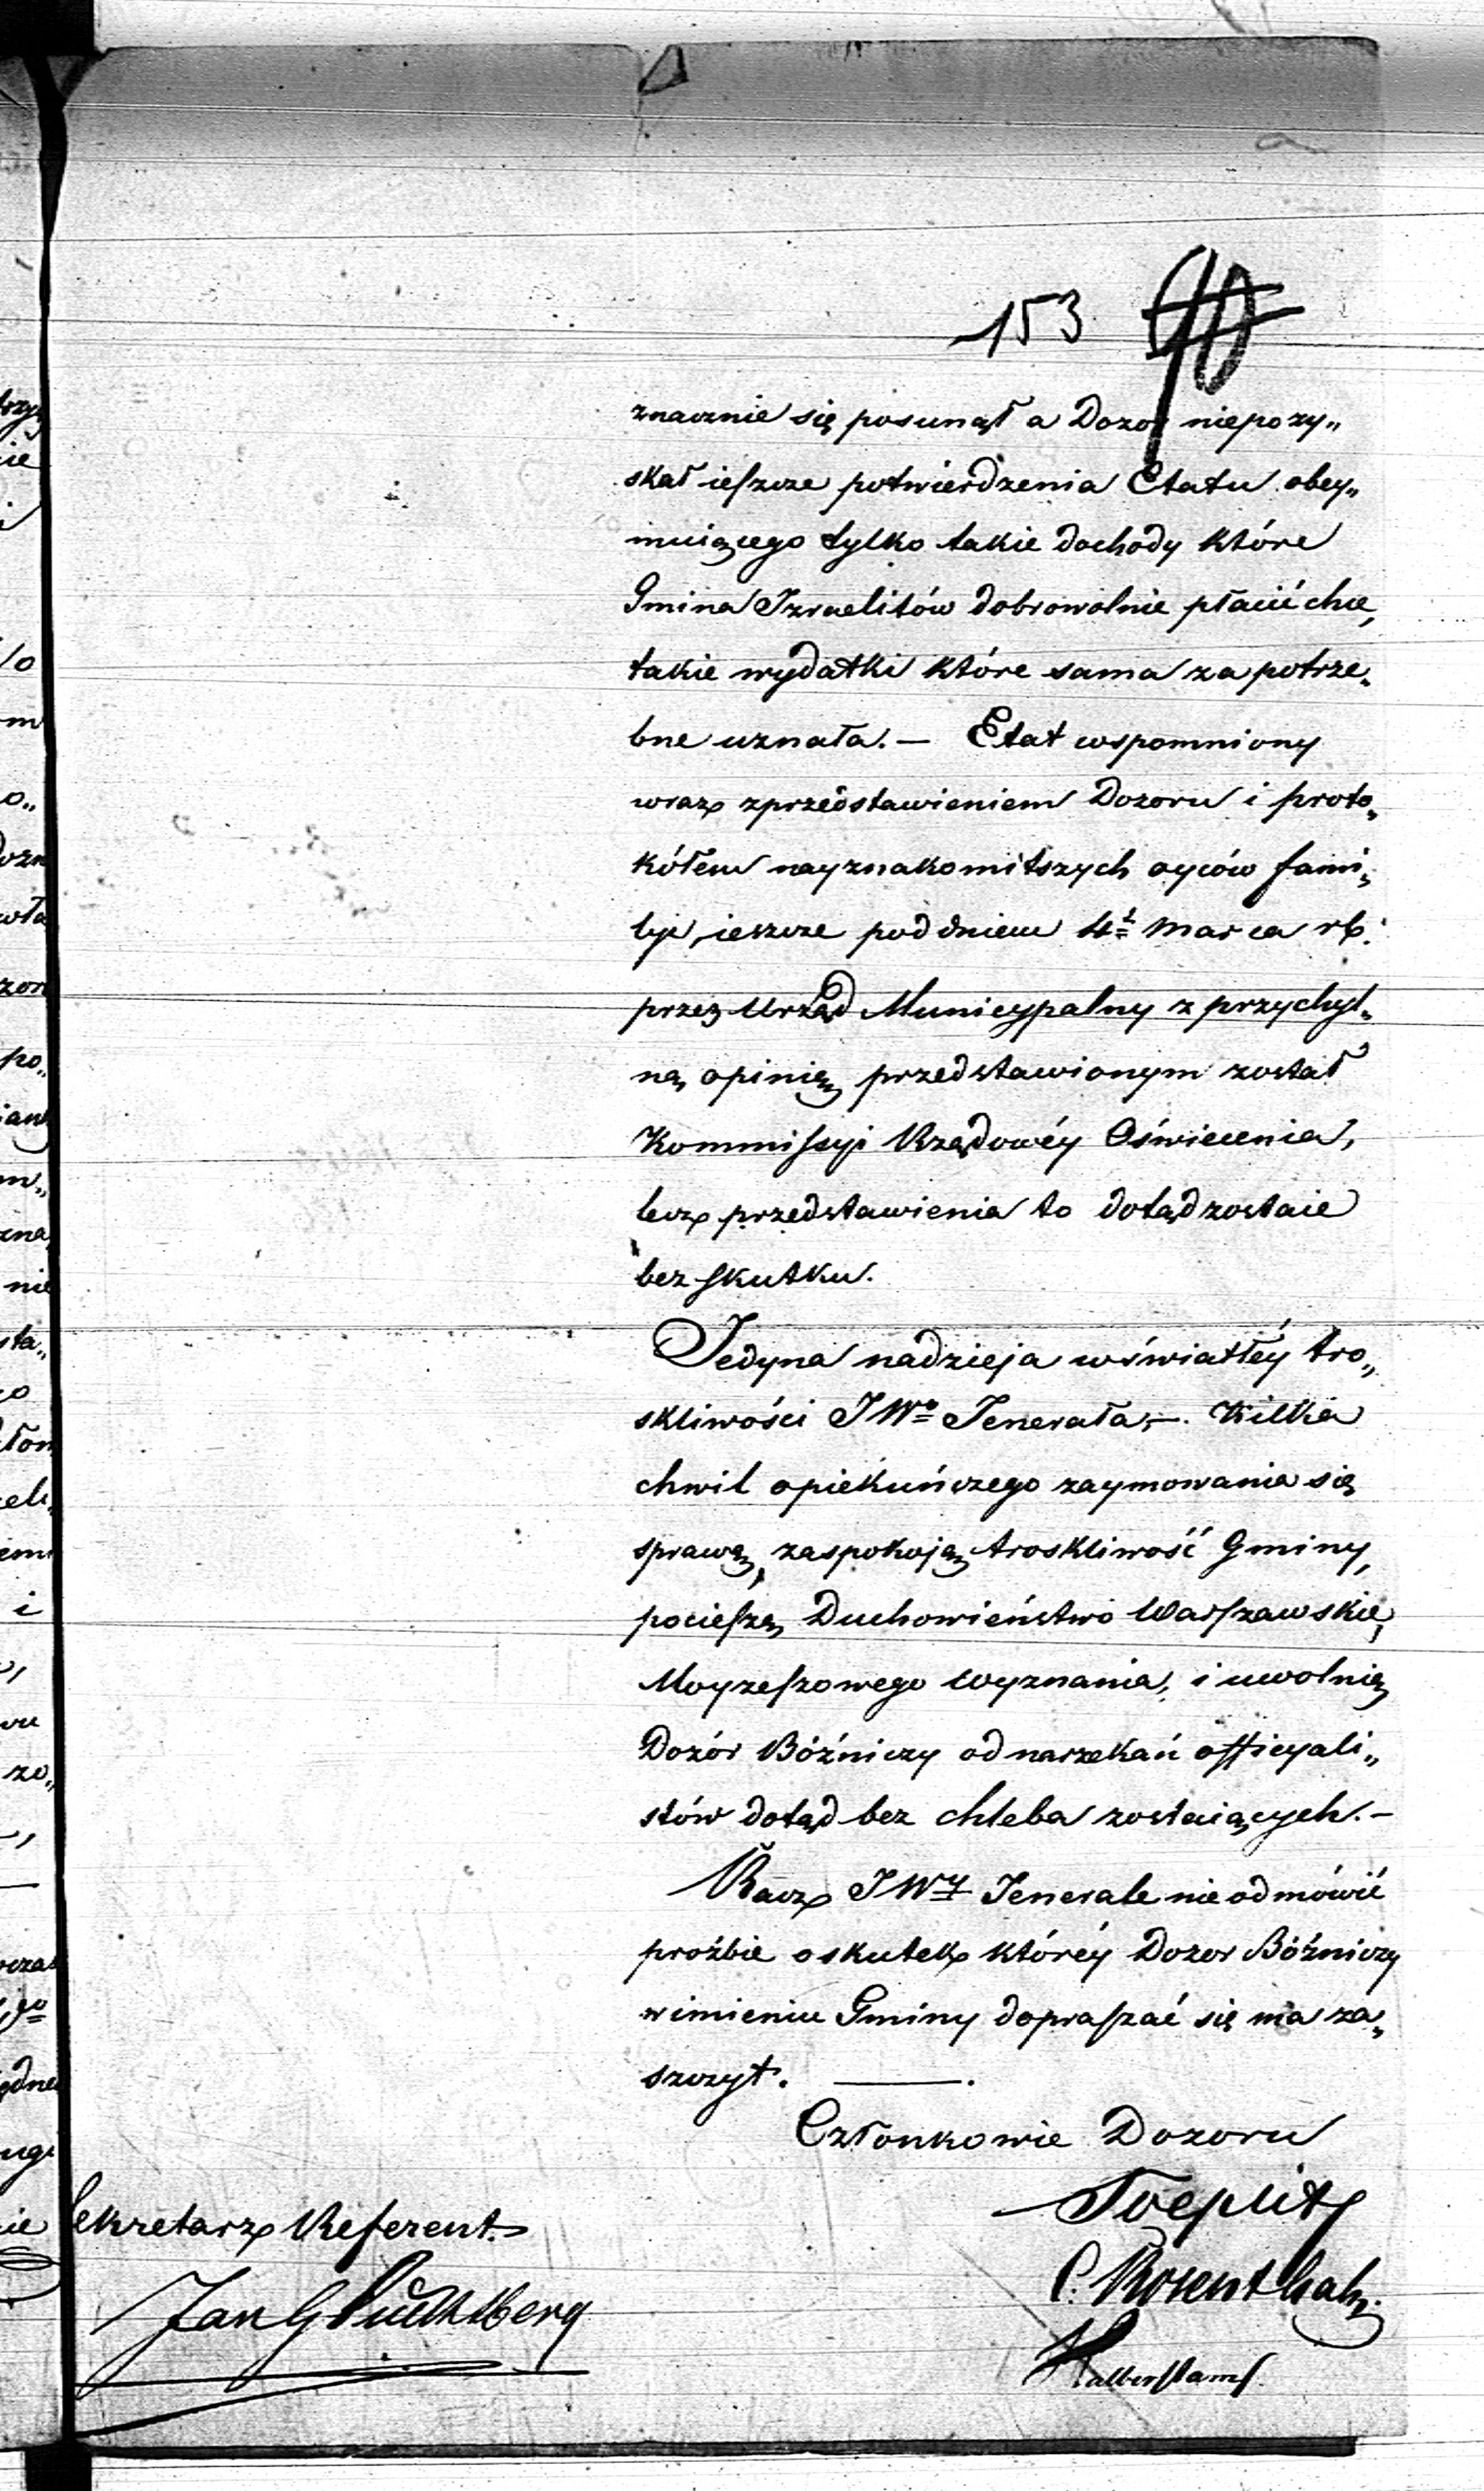 153 90
znacznie się posunął a Dozor niepozy„
skał ieſzcze potwierdzenia Etatu obey„
muiącego tylko takie dochody które
Gmina Izraelitów dobrowolnie płacić chce,
takie wydatki które sama za potrze„
bne uznała. — Etat wspomniony
wraz zprzedstawieniem Dozoru i proto„
kółem nayznakomitszych oyców fami„
lyi, ieszcze pod dniem 4 Marca rb.
przez Urząd Municypalny z przychyl„
ną opinią przedstawionym został
Kommiſsyi Rządowéy Oświecenia,
lecz przedstawienia to dotąd zostaie
bez ſkutku.
Jedyna nadzieja w światłéy tro„
skliwości JWo Jenerała, —. Kilka
chwil opiekuńczego zaymowania się
sprawą, zaspokoją troskliwość Gminy,
pocieſzą Duchowieństwo Warſzawskie,
Moyzeſzowego Wyznania, i uwolnią
Dozór Bóżniczy od narzekań officyali„
stów dotąd bez chleba zostaiących. —
Racz JWy Jenerale nie odmówić
proźbie o skutek któréy Dozor Bóźniczy
w imieniu Gminy dopraſzać się ma za„
szczyt. —.
Członkowie Dozoru
Toeplitz
Sekretarz Referent
C. Rosenthal
Jan Glücksberg
Halberſtam